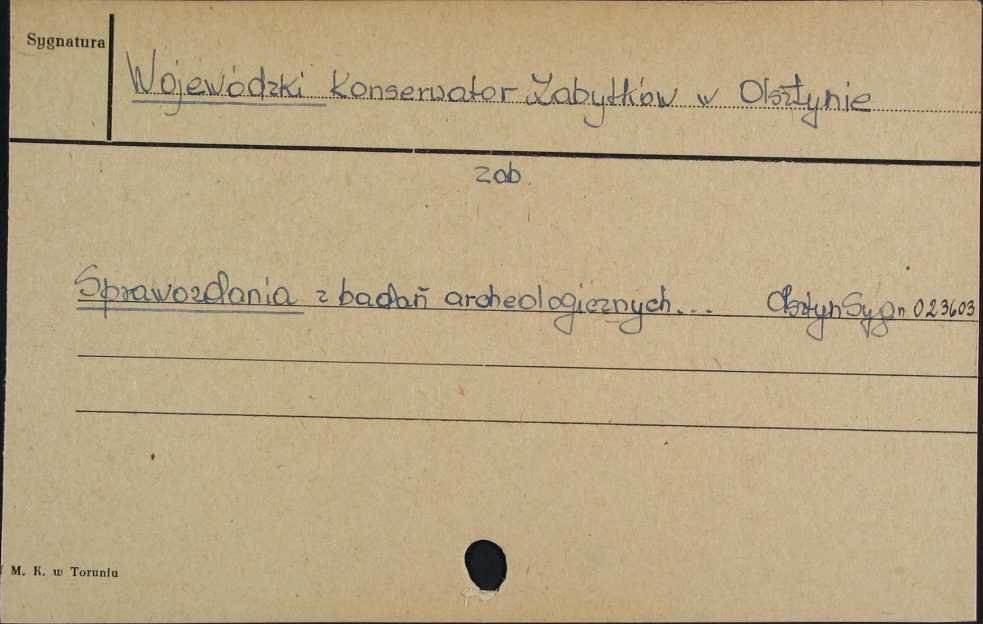 Sygnatura
Wojewódzki Konserwator Zabytków w Olsztynie
zob.
Sprawozdania z badań archeologicznych... Olsztyn Sygn 023603
M. K. w Toruniu